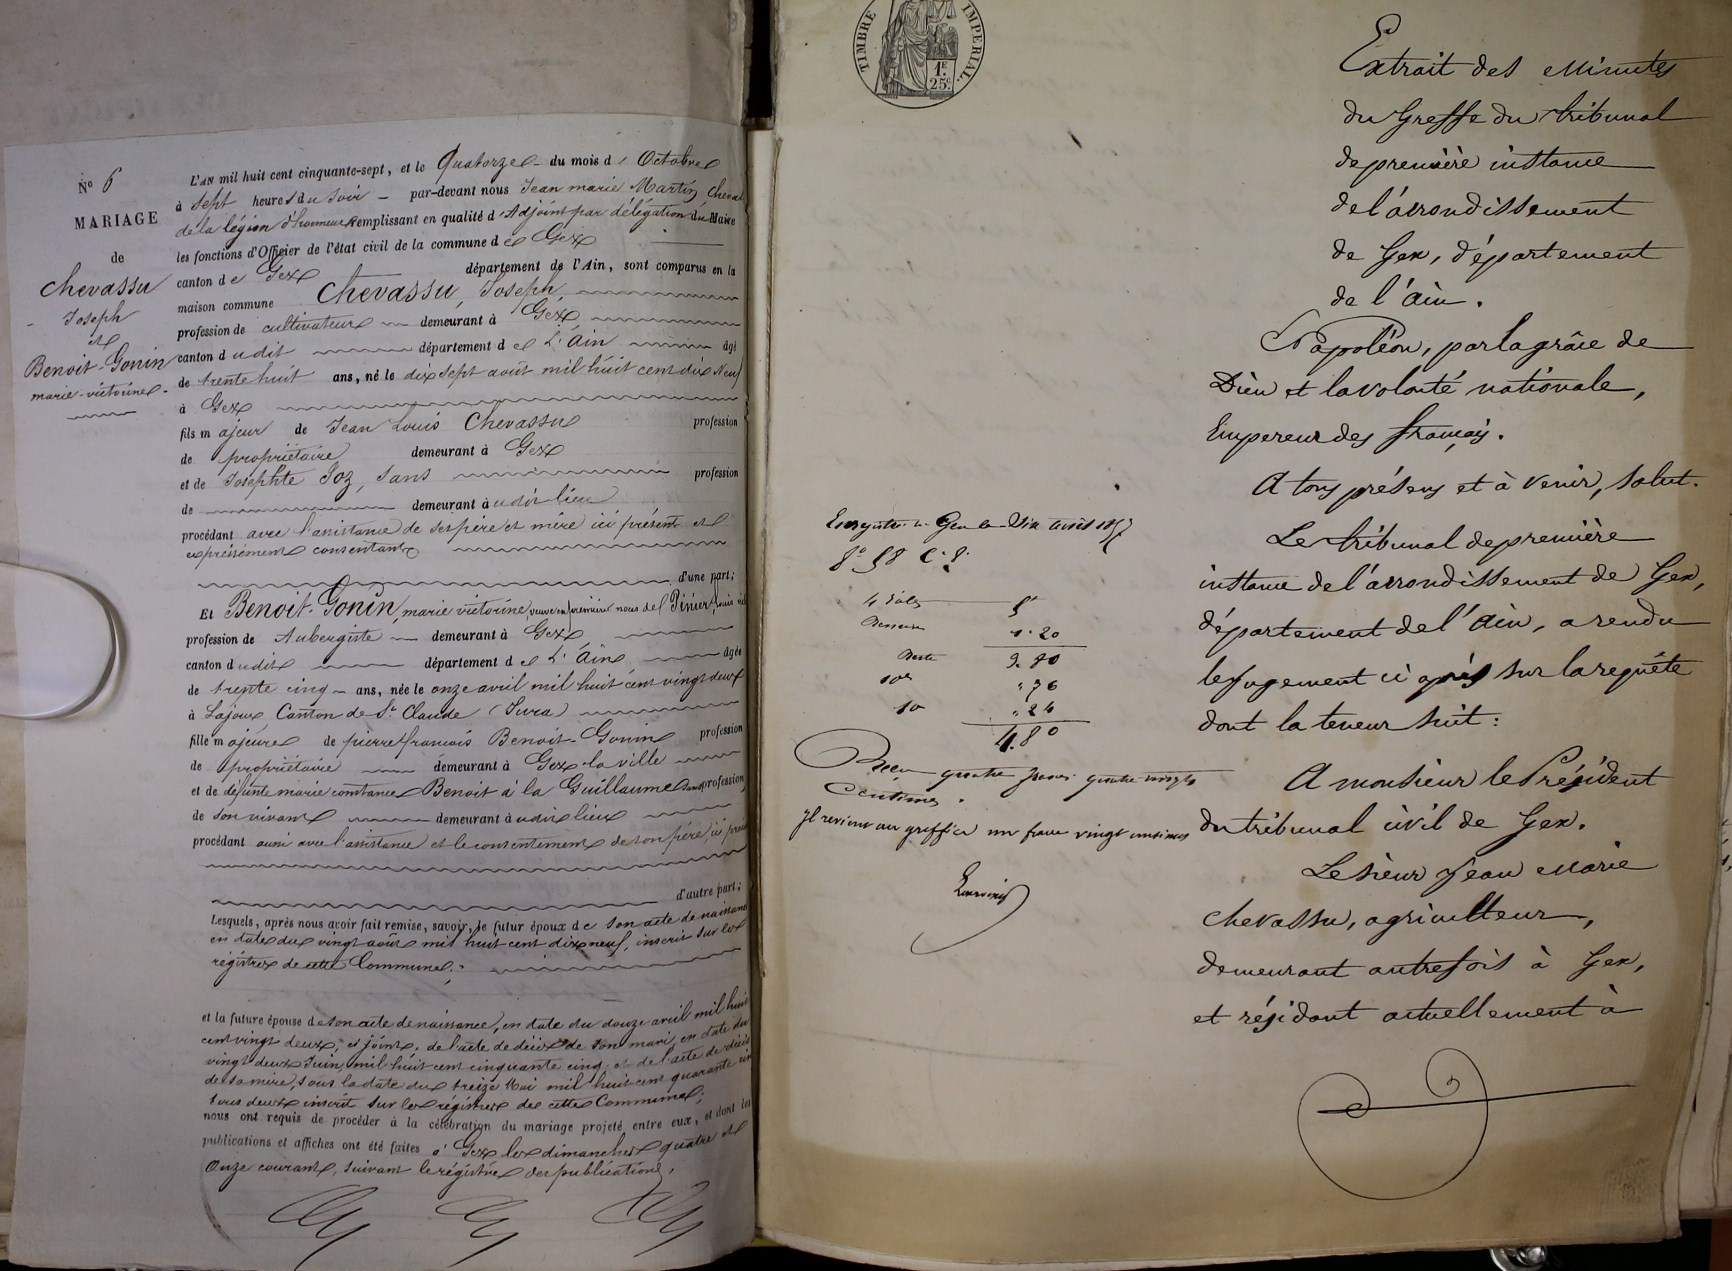 N° 6
MARIAGE
de
Chevassu
Joseph
et
Benoit-Gonin
marie-victorine
L'AN mil huit cent cinquante-sept, et le Quatorze du mois d'Octobre
à sept heures du soir par-devant nous Jean marie Martin Cheval
de la légion d'honneur remplissant en qualité d'Adjoint par délégation du Maire
les fonctions d'Officier de l'état civil de la commune de Gex
canton de Gex département de l'Ain, sont comparus en la
maison commune Chevassu, Joseph,
profession de cultivateur demeurant à Gex
canton dudit département de L'Ain âgé
de trente huit ans, né le dix sept août mil huit cent dix Neuf
à Gex
fils majeur de Jean Louis Chevassu profession
de propriétaire demeurant à Gex
et de Josephte Joz, sans profession
de demeurant audit lieu
procédant avec l'assistance de ses père et mère ici présents et
expressément consentants
d'une part;
Et Benoit-Gonin, marie victorine, veuve en première noces de Pinier Louis
profession de Aubergiste demeurant à Gex,
canton dudit département de L'Ain âgée
de trente cinq ans, née le onze avril mil huit cent vingt deux
à Lajoux Canton de St. Claude (Jura)
fille majeure de pierre françois Benoit-Gonin profession
de propriétaire demeurant à Gex la ville
et de défunte marie constance Benoit à la Guillaume sans profession
de son vivant demeurant audit lieu
procédant aussi avec l'assistance et le consentement de son père, ici
d'autre part;
Lesquels, après nous avoir fait remise, savoir, le futur époux de son acte de naissance
en date du vingt août mil huit cent dix neuf, inscrit sur les
régistres de cette Commune;
et la future épouse de son acte de naissance, en date du douze avril mil huit
cent vingt deux, et joint de l'acte de décès de son mari, en date du
vingt deux Juin mil huit cent cinquante cinq, et de l'acte de décès
de sa mère, sous la date du treize Mai mil huit cent quarante
tous deux inscrit sur les régistres de cette Commune;
nous ont requis de procéder à la célébration du mariage projeté entre eux, et dont les
publications et affiches ont été faites à Gex les dimanches quatre et
Onze courant, suivant le régistre des publications,
TIMBRE IMPERIAL.
1F.
25c.
Enregistré à Gex le Dix août 1857
f° 58 C. 8.
5
Remise 1.20
Reste 3.80
10e .76
10 .24
4.80
Reçu quatre francs quatre vingts
Centimes.
Il revient au greffier un franc vingt centimes
Extrait des Minutes
du Greffe du tribunal
de première instance
de l'arrondissement
de Gex, département
de l'Ain.
Napoléon, par la grâce de
Dieu et la volonté nationale,
Empereur des français.
A tous présens et à venir, salut.
Le tribunal de première
instance de l'arrondissement de Gex,
département de l'Ain, a rendu
le jugement ci après sur la requête
dont la teneur suit:
A monsieur le Président
du tribunal civil de Gex.
Le sieur Jean Marie
Chevassu, agriculteur,
demeurant autrefois à Gex,
et résidant actuellement à